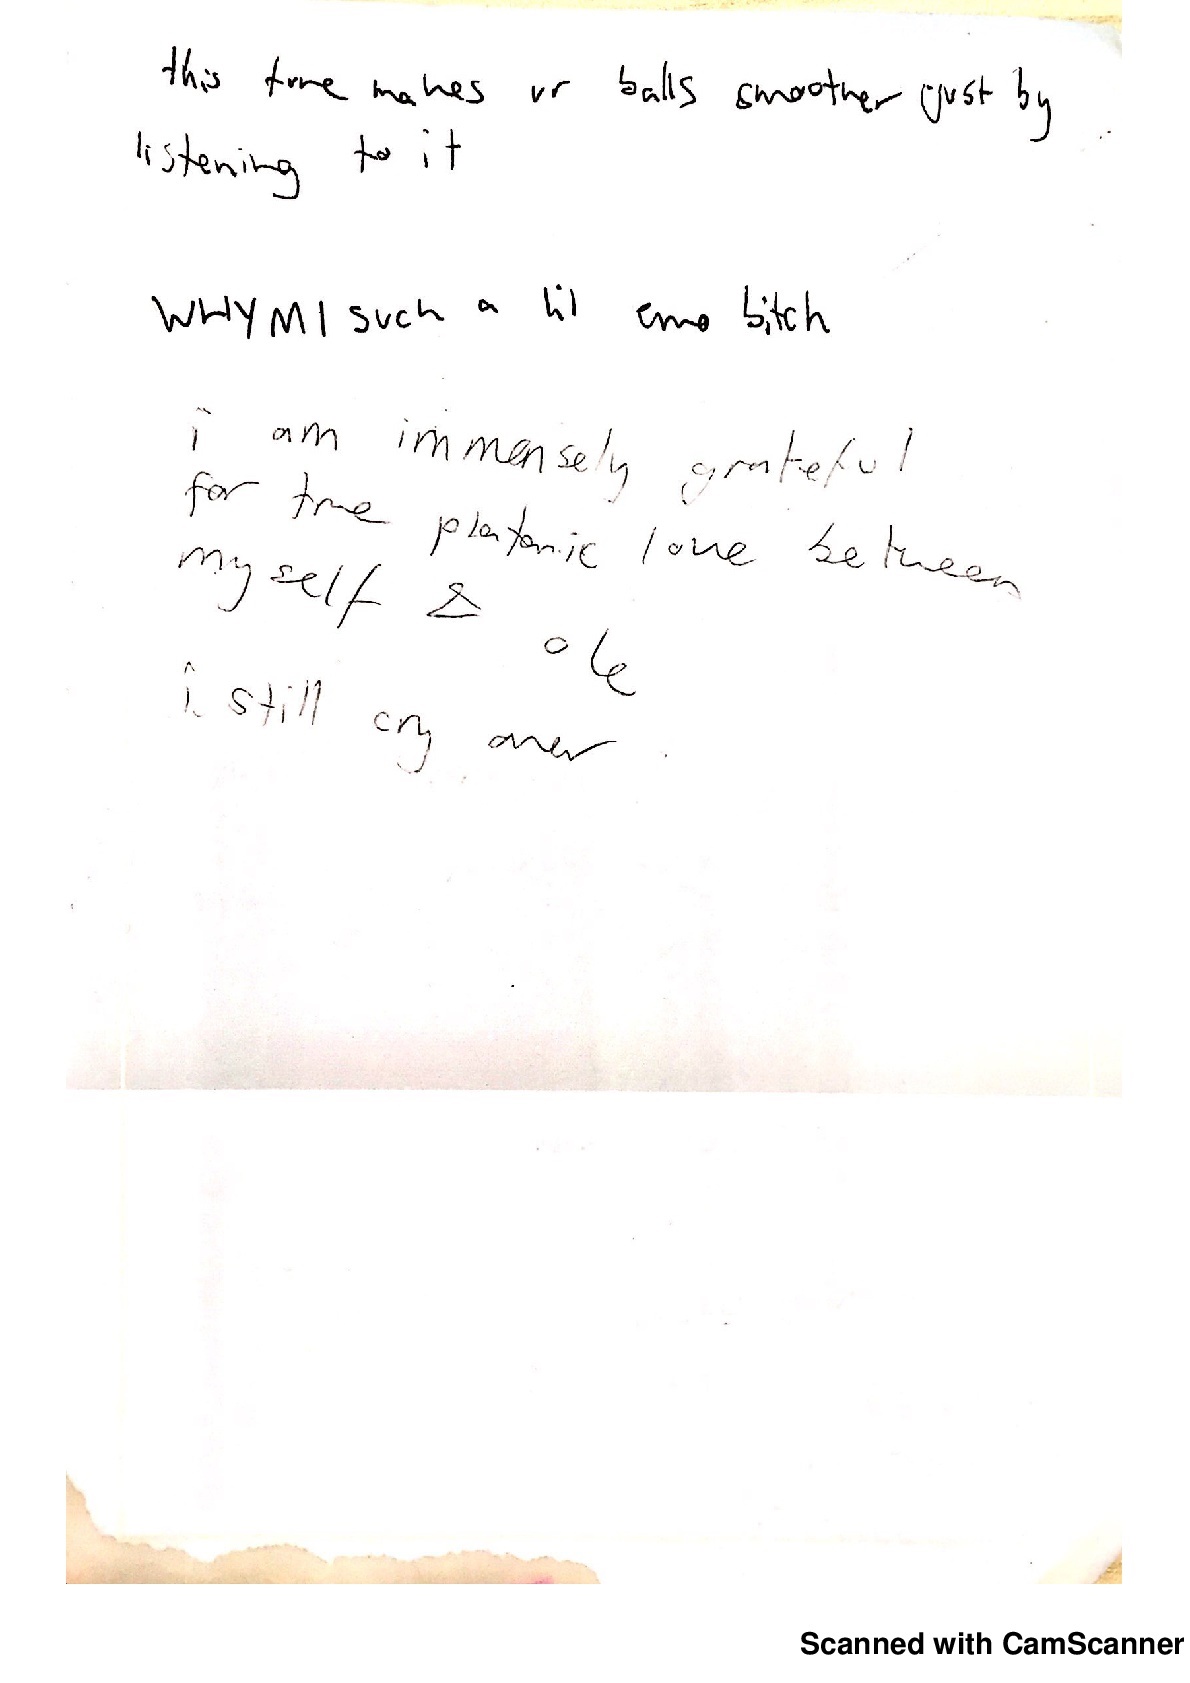 this tune makes ur balls smoother just by
listening to it
WHY M I such a lil emo bitch
i am immensely grateful
for true platonic love between
myself &
ole
i still cry over
Scanned with CamScanner